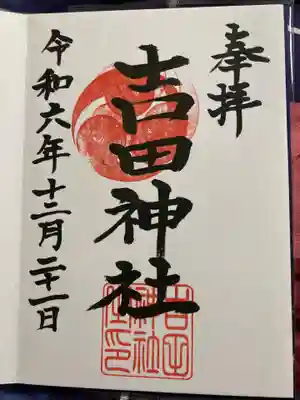 奉拝
吉田神社
令和六年十二月二十一日
吉田
神社